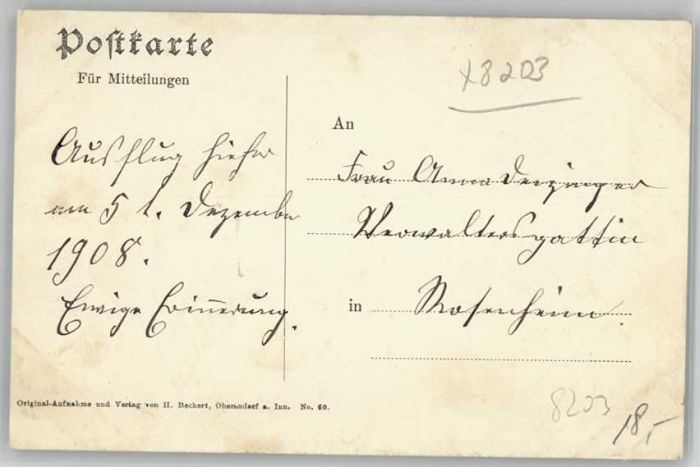 Postkarte
Für Mitteilungen
x8203
An
Ausflug hieher
Frau Anna
am 5 t. Dezember
Verwaltersgattin
1908.
in Rosenheim.
Ewige Erinnerung.
Original-Aufnahme und Verlag von H. Beckert, Oberaudorf a. Inn. No. 60.
8203
18,-